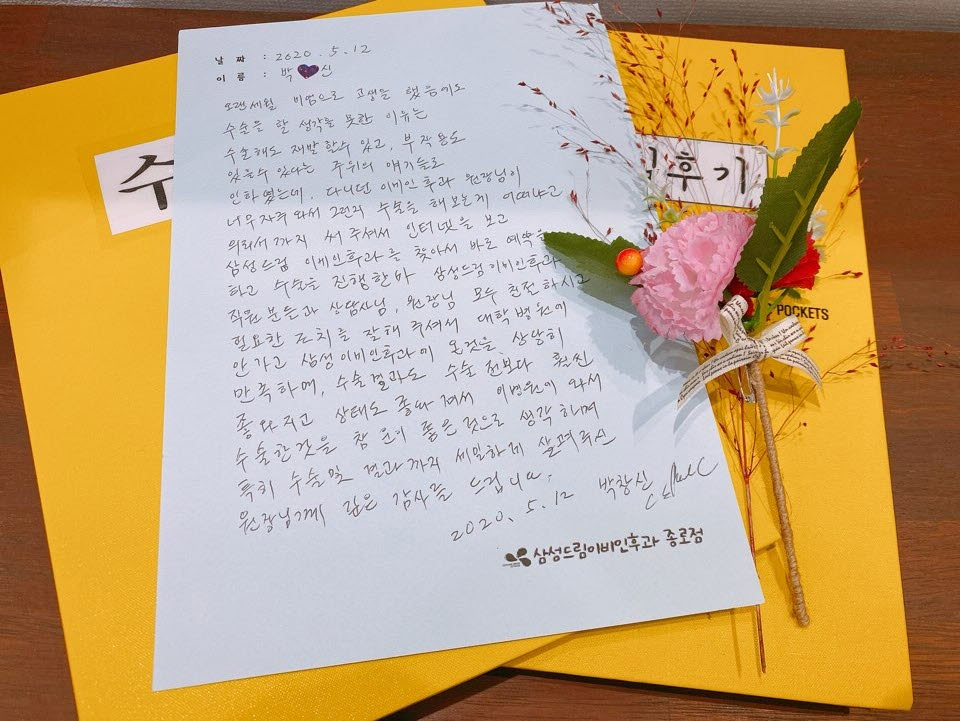 날 짜 : 2020. 5. 12
이 름 : 박 신
오랜세월 비염으로 고생을 했음에도
수술을 할 생각을 못한 이유는
수술해도 재발할수 있고, 부작용도
있을수 있다는 주위의 얘기들로
인하였는데, 다니던 이비인후과 원장님이
너무자주 와서 그런지 수술을 해보는게 어떠냐고
의뢰서까지 써주셔서 인터넷을 보고
삼성드림 이비인후과를 찾아서 바로 예약을
하고 수술을 진행한바 삼성드림이비인후과
직원분들과 상담사님, 원장님 모두 친절하시고
필요한 조치를 잘해 주셔서 대학병원에
안가고 삼성이비인후과에 온것을 상당히
만족하며, 수술결과도 수술전보다 훨씬
좋아지고 상태도 좋아져서 이병원에 와서
수술한것을 참 운이 좋은것으로 생각하며
특히 수술및 결과까지 세밀하게 살펴주신
원장님께 깊은 감사를 드립니다.
2020. 5. 12 박창신
삼성드림이비인후과 종로점
수
후기
POCKETS